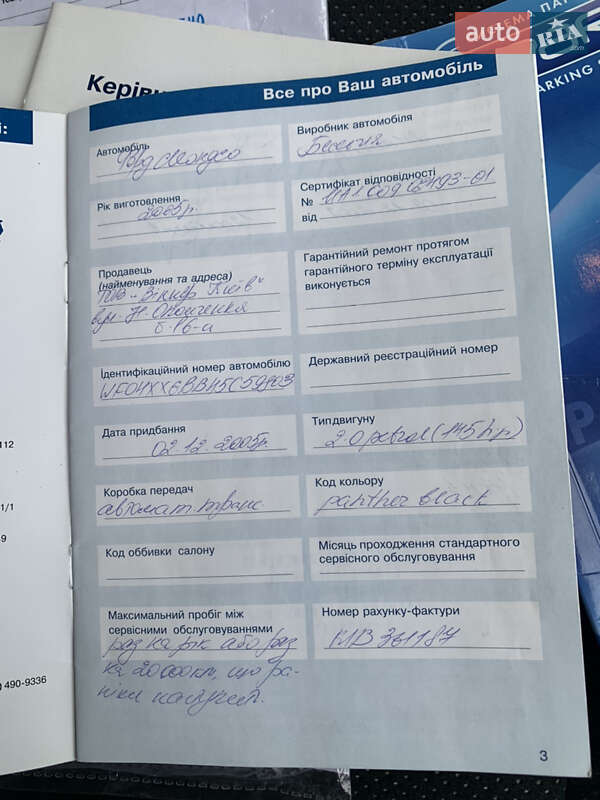 auto RIA
.com
ЕМА ПАР
ARKING
Керівн
Все про Ваш автомобіль
і:
Автомобіль
Форд Мондео
Виробник автомобіля
Бельгія
Рік виготовлення
2005р.
Сертифікат відповідності
№
від
Продавець
(найменування та адреса)
ТОВ "Віннер Київ"
вул.
Гарантійний ремонт протягом
гарантійного терміну експлуатації
виконується
Ідентифікаційний номер автомобілю
WF04XXGBB45C59803
Державний реєстраційний номер
Дата придбання
02.12.2005р.
Тип двигуну
2.0 petrol (145 h.p)
Коробка передач
автомат. транс
Код кольору
panther black
Код оббивки салону
Місяць проходження стандартного
сервісного обслуговування
Максимальний пробіг між
сервісними обслуговуваннями
раз на рік або раз
на 20 000 км, що ра-
ніше наступит.
Номер рахунку-фактури
КПВ 361187
112
1/1
9
) 490-9336
3